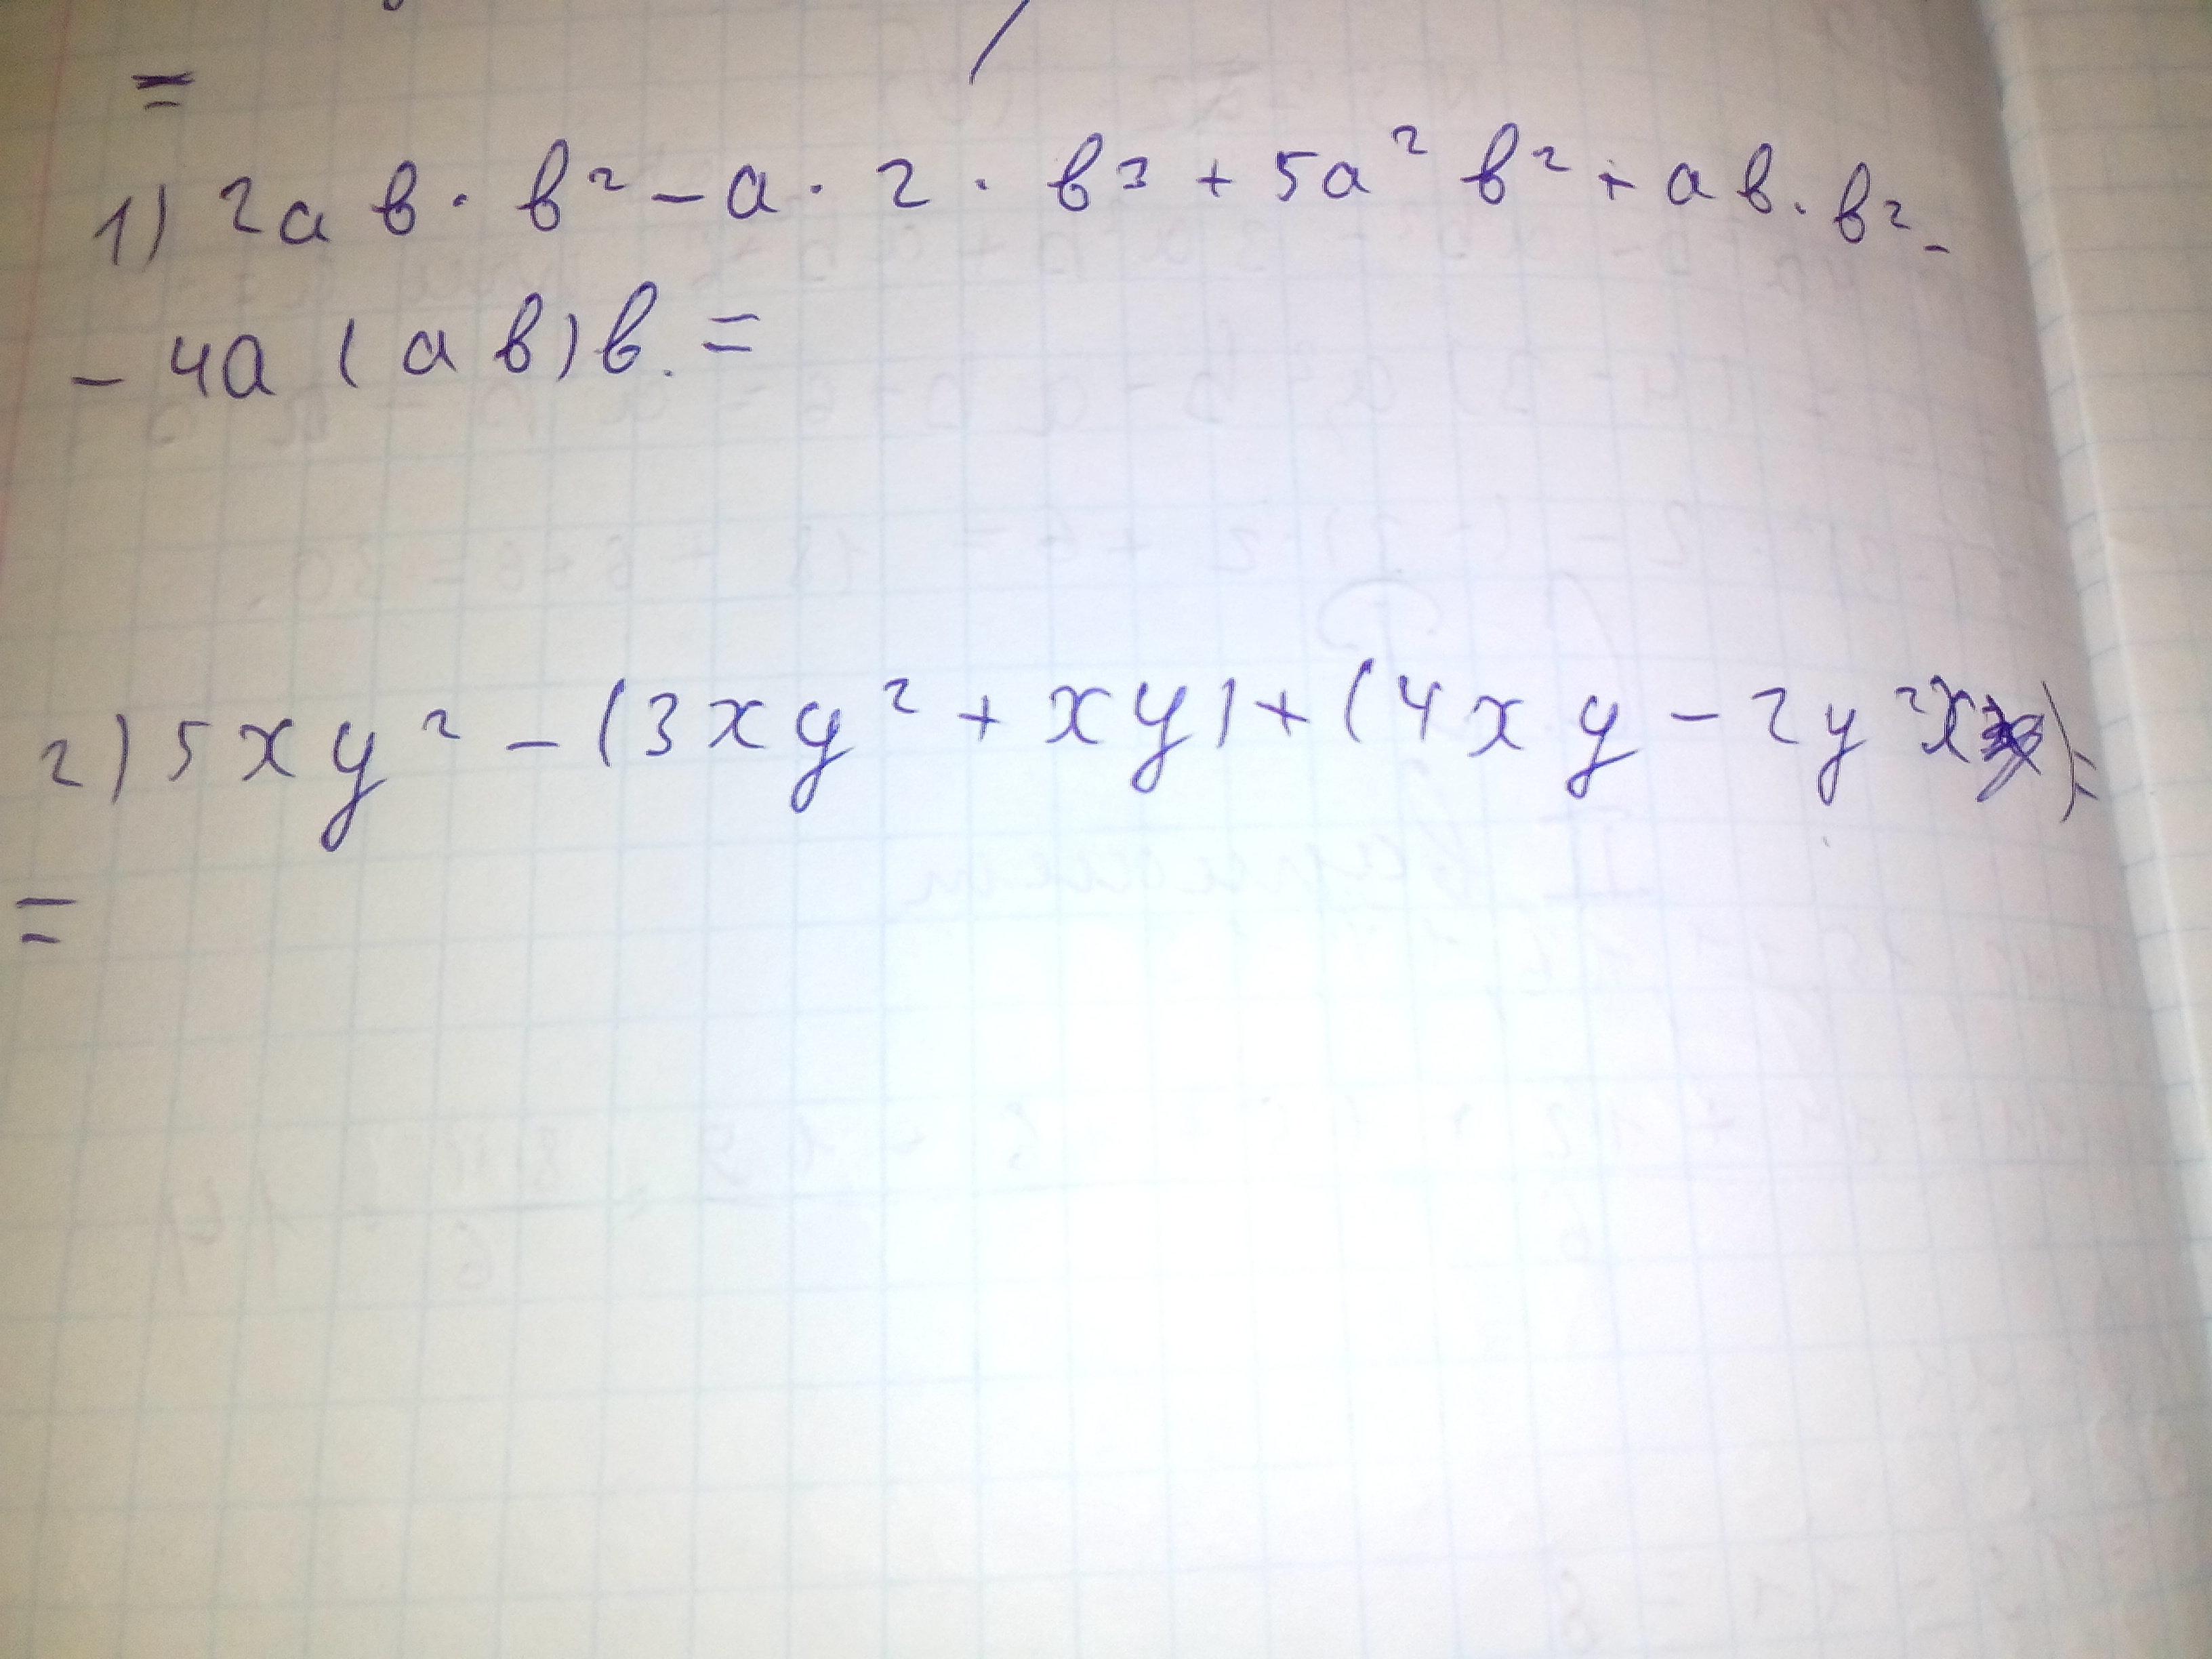 =
1) 2ab · b² - a · 2 · b³ + 5a² b² + ab · b² -
- 4a (ab)b. =
2) 5xy² - (3xy² + xy) + (4xy - 2y²x) =
=